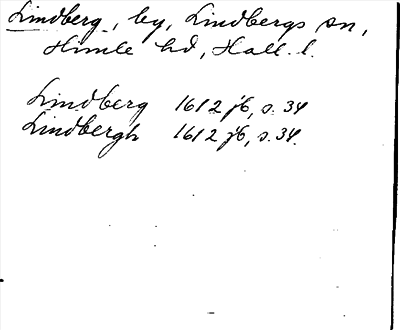 Lindberg, by, Lindbergs sn,
Himle hd, Hall. l.
Lindberg 1612 jb, s. 34
Lindbergh 1612 jb, s. 34.